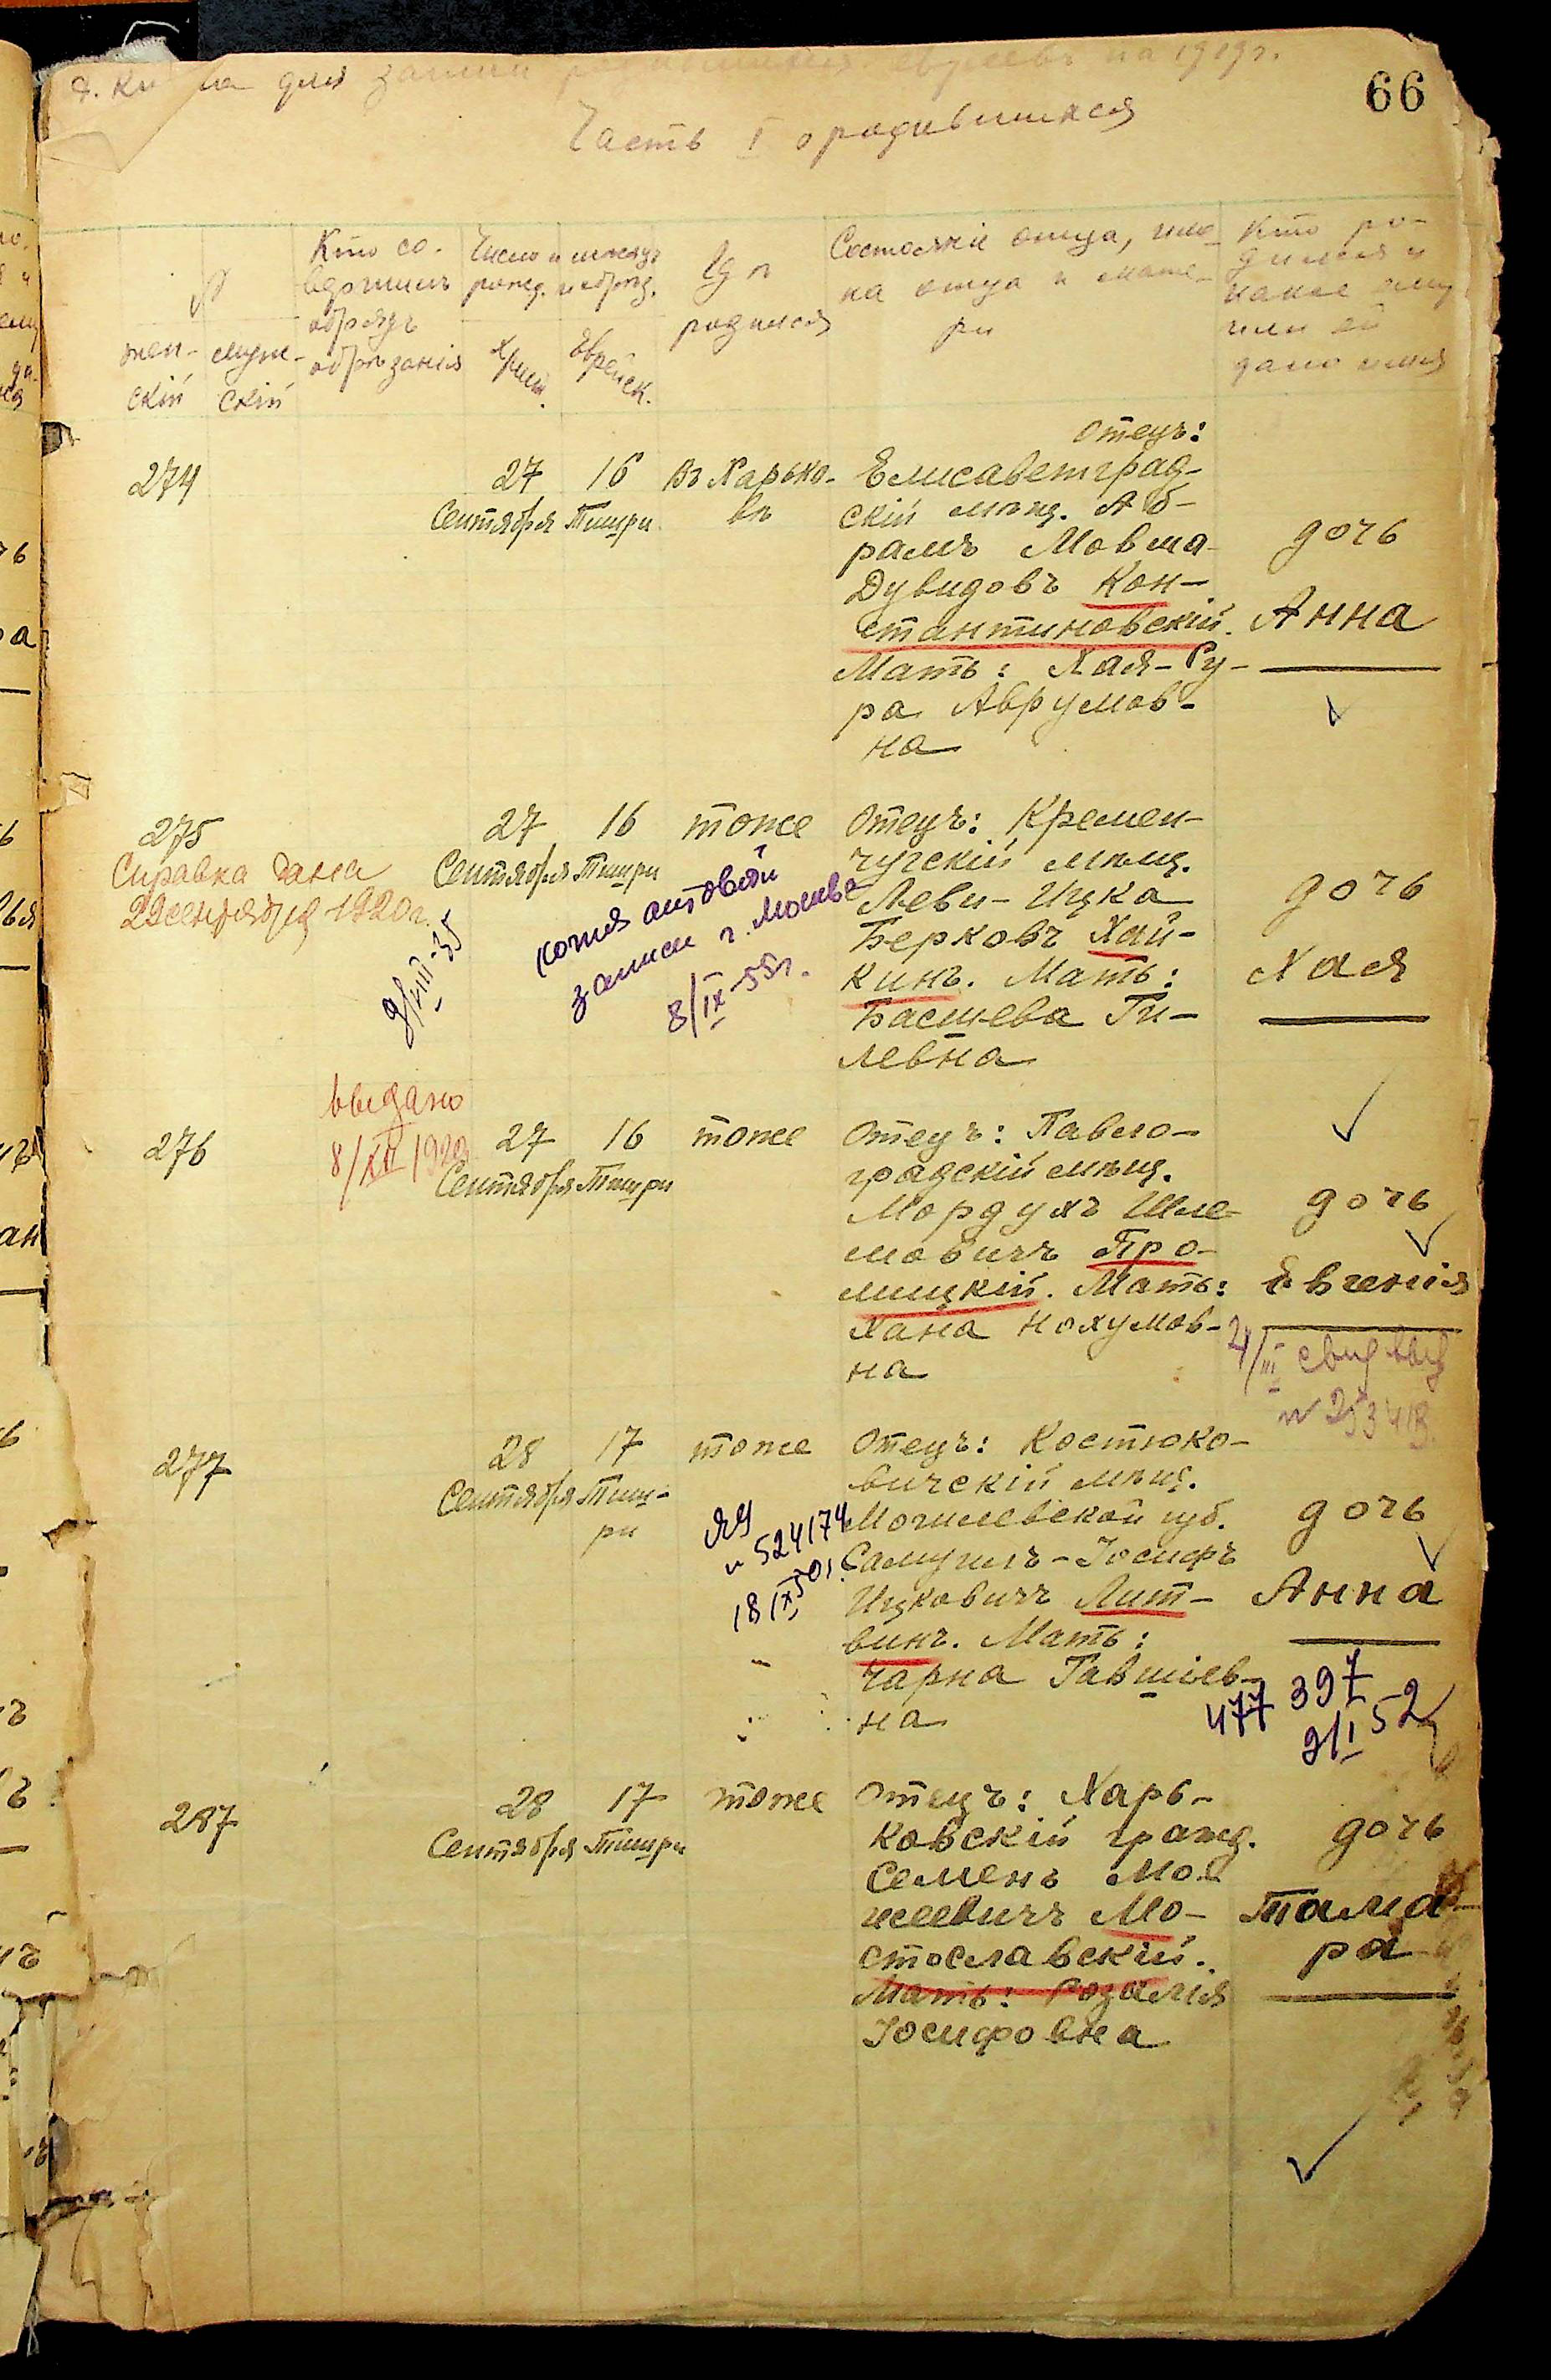 для записи родившихся евреевъ на 1919г.
66
Часть I о родившихся
№
женскій
мужескій
Кто совершилъ
обрядъ
обрѣзанія
Число и мѣсяцъ
рожд. и обрѣз.
Христ.
Еврейск.
Гдѣ
родился
Состояніе отца, имена
отца и матери
Кто родился и
какое ему
или ей
дано имя
274
27
16
въ Харько-
вѣ
Сентября Тишри
отецъ:
Елисаветград-
скій мѣщ. Аб-
рамъ Мовша-
Дувидовъ Кон-
стантиновскій.
Мать: Хая-Су-
ра Аврумов-
на
дочь
Анна
275
Справка дана
22 сентября 1920г.
9/VIII-35
27
16
тоже
Сентября Тишри
копия актовой
записи г. Москва
8/IX-55г.
Отецъ: Кремен-
чугскій мѣщ.
Леви-Ицка
Берковъ Хай-
кинъ. Мать:
Басшева Ги-
левна
дочь
Хая
276
выдано
8/XII 1920
27
16
тоже
Сентября Тишри
Отецъ: Павло-
градскій мѣщ.
Мордухъ Шле-
мовичъ Про-
мицкій. Мать:
Хана Нохумов-
на
дочь
Евгенія
4/III свид выд
277
28
17
тоже
Сентября Тиш-
ри
ЯЧ
№ 524174
18 IX 50г.
Отецъ: Костюко-
вичскій мѣщ.
Могилевской губ.
Самуилъ-Іосифъ
Ицковичъ Лит-
винъ. Мать:
Чарна Гавшіев-
на
дочь
Анна
477 397
9/I 52
287
28
17
тоже
Сентября Тишри
Отецъ: Харь-
ковскій гражд.
Семенъ Мои-
сеевичъ Мо-
стославскій.
Мать: Розалія
Іосифовна
дочь
Тама-
ра